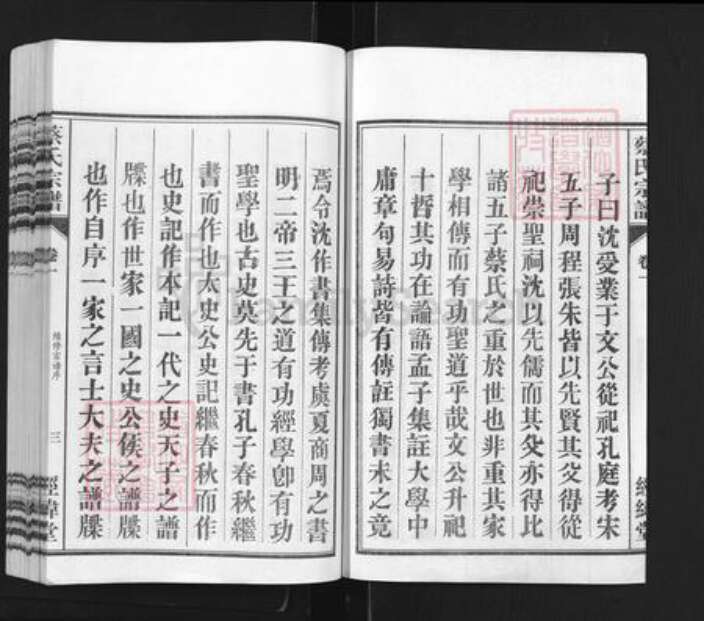 蔡氏宗譜
卷一
經緯堂
子曰沈受業于文公從祀孔庭考宋
五子周程張朱皆以先賢其父得從
祀崇聖祠沈以先儒而其父亦得比
諸五子蔡氏之重於世也非重其家
學相傳而有功聖道乎哉文公升祀
十哲其功在論語孟子集註大學中
庸章句易詩皆有傳註獨書未之竟
焉令沈作書集傳考虞夏商周之書
明二帝三王之道有功經學卽有功
聖學也古史莫先于書孔子春秋繼
書而作也太史公史記繼春秋而作
也史記作本記一代之史天子之譜
牒也作世家一國之史公侯之譜牒
也作自序一家之言士大夫之譜牒
蔡氏宗譜
卷一
續修宗譜序
三
經緯堂
FamilySearch